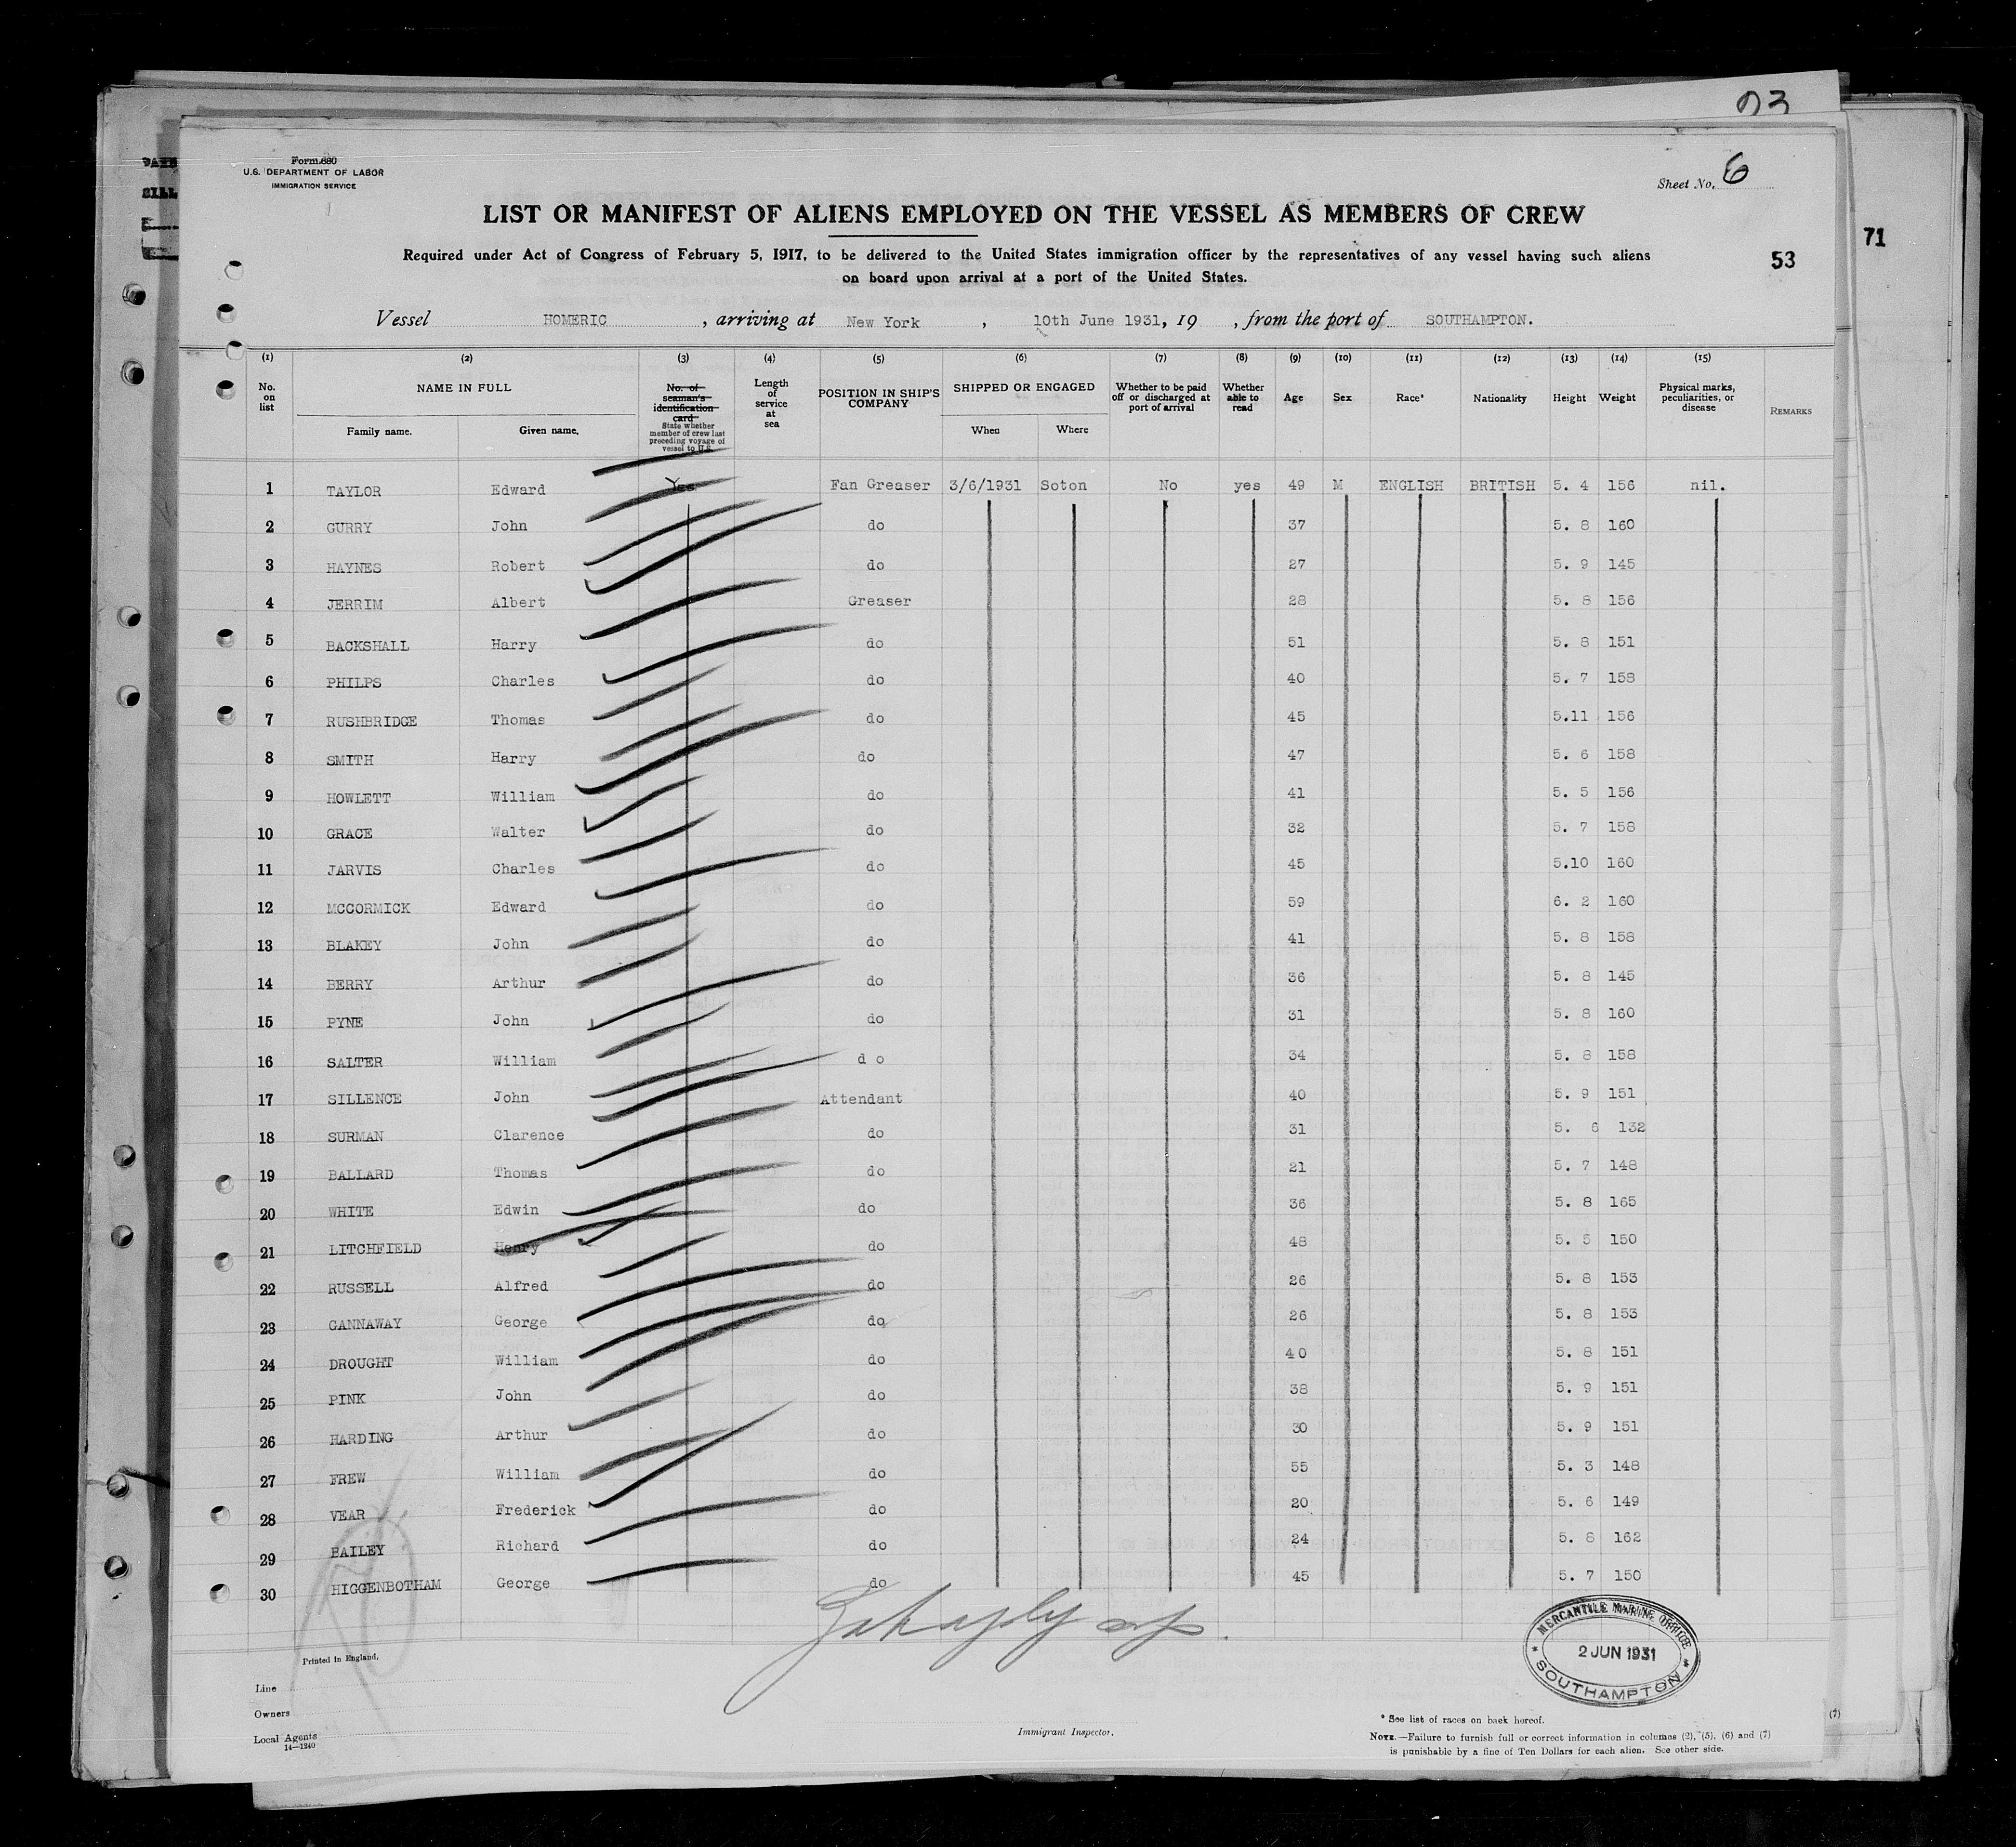 93
PAYN
SILL
71
Form 680
U.S. DEPARTMENT OF LABOR
IMMIGRATION SERVICE
Sheet No. 6
LIST OR MANIFEST OF ALIENS EMPLOYED ON THE VESSEL AS MEMBERS OF CREW
Required under Act of Congress of February 5, 1917, to be delivered to the United States immigration officer by the representatives of any vessel having such aliens
on board upon arrival at a port of the United States.
53
Vessel HOMERIC, arriving at New York, 10th June 1931, 19 , from the port of SOUTHAMPTON.
(1) (2) (3) (4) (5) (6) (7) (8) (9) (10) (11) (12) (13) (14) (15)
No. on list NAME IN FULL Family name. Given name. No. of seaman's identification card State whether member of crew last preceding voyage of vessel to U.S. Length of service at sea POSITION IN SHIP'S COMPANY SHIPPED OR ENGAGED When Where Whether to be paid off or discharged at port of arrival Whether able to read Age Sex Race* Nationality Height Weight Physical marks, peculiarities, or disease REMARKS
1 TAYLOR Edward Yes Fan Greaser 3/6/1931 Soton No yes 49 M ENGLISH BRITISH 5. 4 156 nil.
2 GURRY John do 37 5. 8 160
3 HAYNES Robert do 27 5. 9 145
4 JERRIM Albert Greaser 28 5. 8 156
5 BACKSHALL Harry do 51 5. 8 151
6 PHILPS Charles do 40 5. 7 158
7 RUSHBRIDGE Thomas do 45 5.11 156
8 SMITH Harry do 47 5. 6 158
9 HOWLETT William do 41 5. 5 156
10 GRACE Walter do 32 5. 7 158
11 JARVIS Charles do 45 5.10 160
12 MCCORMICK Edward do 59 6. 2 160
13 BLAKEY John do 41 5. 8 158
14 BERRY Arthur do 36 5. 8 145
15 PYNE John do 31 5. 8 160
16 SALTER William d o 34 5. 8 158
17 SILLENCE John Attendant 40 5. 9 151
18 SURMAN Clarence do 31 5. 6 132
19 BALLARD Thomas do 21 5. 7 148
20 WHITE Edwin do 36 5. 8 165
21 LITCHFIELD Henry do 48 5. 5 150
22 RUSSELL Alfred do 26 5. 8 153
23 GANNAWAY George do 26 5. 8 153
24 DROUGHT William do 40 5. 8 151
25 PINK John do 38 5. 9 151
26 HARDING Arthur do 30 5. 9 151
27 FREW William do 55 5. 3 148
28 VEAR Frederick do 20 5. 6 149
29 BAILEY Richard do 24 5. 8 162
30 HIGGENBOTHAM George do 45 5. 7 150
MERCANTILE MARINE OFFICE
2 JUN 1931
* SOUTHAMPTON *
Printed in England.
Line
Owners
Local Agents
14—1240
Immigrant Inspector.
* See list of races on back hereof.
NOTE.—Failure to furnish full or correct information in columns (2), (5), (6) and (7)
is punishable by a fine of Ten Dollars for each alien. See other side.
(7)